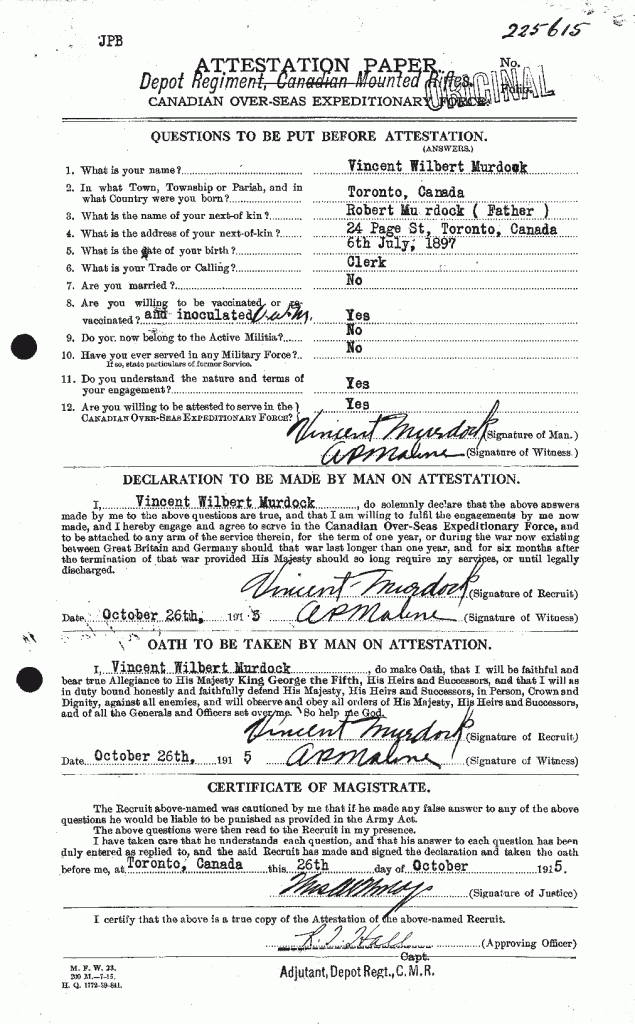 225615
JPB
ATTESTATION PAPER. No.
Depot Regiment, Canadian Mounted Rifles. Folio.
ORIGINAL
CANADIAN OVER-SEAS EXPEDITIONARY FORCE.
QUESTIONS TO BE PUT BEFORE ATTESTATION.
(ANSWERS.)
1. What is your name? Vincent Wilbert Murdock
2. In what Town, Township or Parish, and in
what Country were you born? Toronto, Canada
3. What is the name of your next-of kin? Robert Mu rdock ( Father )
4. What is the address of your next-of-kin? 24 Page St, Toronto, Canada
5. What is the date of your birth? 6th July, 1897
6. What is your Trade or Calling? Clerk
7. Are you married? No
8. Are you willing to be vaccinated or re-
vaccinated? and inoculated V.W.M. Yes
9. Do you now belong to the Active Militia? No
10. Have you ever served in any Military Force? No
If so, state particulars of former Service.
11. Do you understand the nature and terms of
your engagement? Yes
12. Are you willing to be attested to serve in the
CANADIAN OVER-SEAS EXPEDITIONARY FORCE? Yes
Vincent Murdock (Signature of Man.)
(Signature of Witness.)
DECLARATION TO BE MADE BY MAN ON ATTESTATION.
I, Vincent Wilbert Murdock, do solemnly declare that the above answers
made by me to the above questions are true, and that I am willing to fulfil the engagements by me now
made, and I hereby engage and agree to serve in the Canadian Over-Seas Expeditionary Force, and
to be attached to any arm of the service therein, for the term of one year, or during the war now existing
between Great Britain and Germany should that war last longer than one year, and for six months after
the termination of that war provided His Majesty should so long require my services, or until legally
discharged.
Vincent Murdock (Signature of Recruit)
Date October 26th, 1915 (Signature of Witness)
OATH TO BE TAKEN BY MAN ON ATTESTATION.
I, Vincent Wilbert Murdock, do make Oath, that I will be faithful and
bear true Allegiance to His Majesty King George the Fifth, His Heirs and Successors, and that I will as
in duty bound honestly and faithfully defend His Majesty, His Heirs and Successors, in Person, Crown and
Dignity, against all enemies, and will observe and obey all orders of His Majesty, His Heirs and Successors,
and of all the Generals and Officers set over me. So help me God.
Vincent Murdock (Signature of Recruit)
Date October 26th, 1915 (Signature of Witness)
CERTIFICATE OF MAGISTRATE.
The Recruit above-named was cautioned by me that if he made any false answer to any of the above
questions he would be liable to be punished as provided in the Army Act.
The above questions were then read to the Recruit in my presence.
I have taken care that he understands each question, and that his answer to each question has been
duly entered as replied to, and the said Recruit has made and signed the declaration and taken the oath
before me, at Toronto, Canada this 26th day of October 1915.
(Signature of Justice)
I certify that the above is a true copy of the Attestation of the above-named Recruit.
Hall (Approving Officer)
Capt.
Adjutant, Depot Regt., C. M. R.
M. F. W. 23.
200 M.—7-15.
H. Q. 1772-39-841.